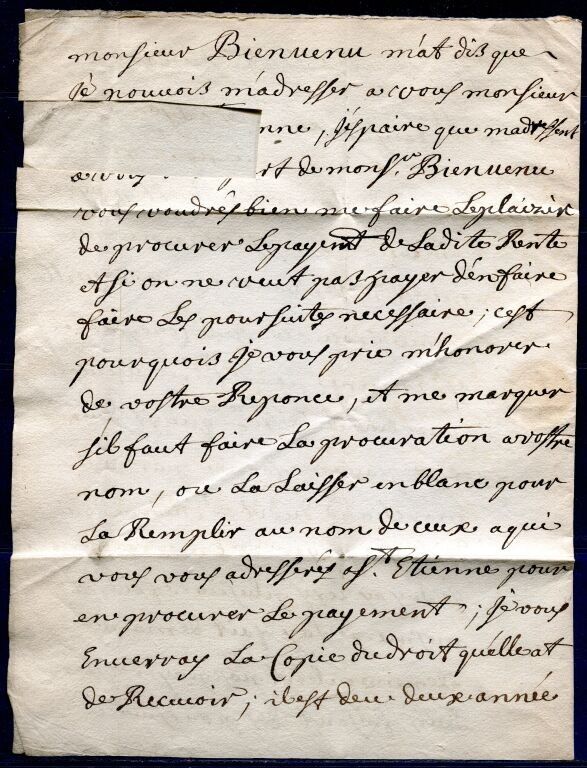 monsieur Bienuenu m'at dis que
Je pouuois m'adresser a vous monsieur
nne, j'éspaire que m'adressent
a vous rt de mons.r Bienuenu
vous voudrés bien me faire Le plaizir
de procurer Le payemt de Ladite Rente
et si on ne veut pas payer d'en faire
faire Les poursuites necessaire; c'est
pourquois je vous prie m'honorer
de vostre Reponce, et me marquer
s'il faut faire La procuration a vostre
nom, ou La Laisser en blanc pour
La Remplir au nom de ceux a qui
vous vous adresserés a St. Etienne pour
en procurer Le payement; je vous
Enuerray La Copie du droit qu'elle at
de Receuoir; il est deu deux année